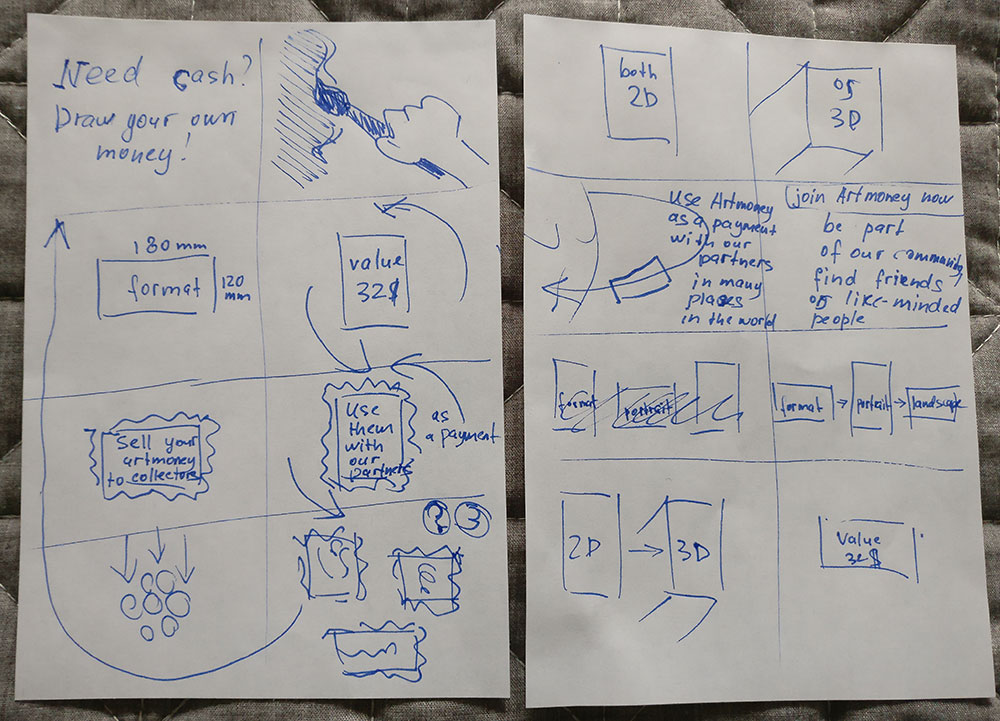 Need cash?
Draw your own
money!
180 mm
format
120
mm
value
32$
Sell your
artmoney
to collectors
Use
them
with
our
partners
as
a payment
both
2D
or
3D
Use Artmoney
as a payment
with our
partners
in many
places
in the world
join Artmoney now
be part
of our community
find friends
or like-minded
people
format
portrait
format → portrait → landscape
2D → 3D
Value
32$